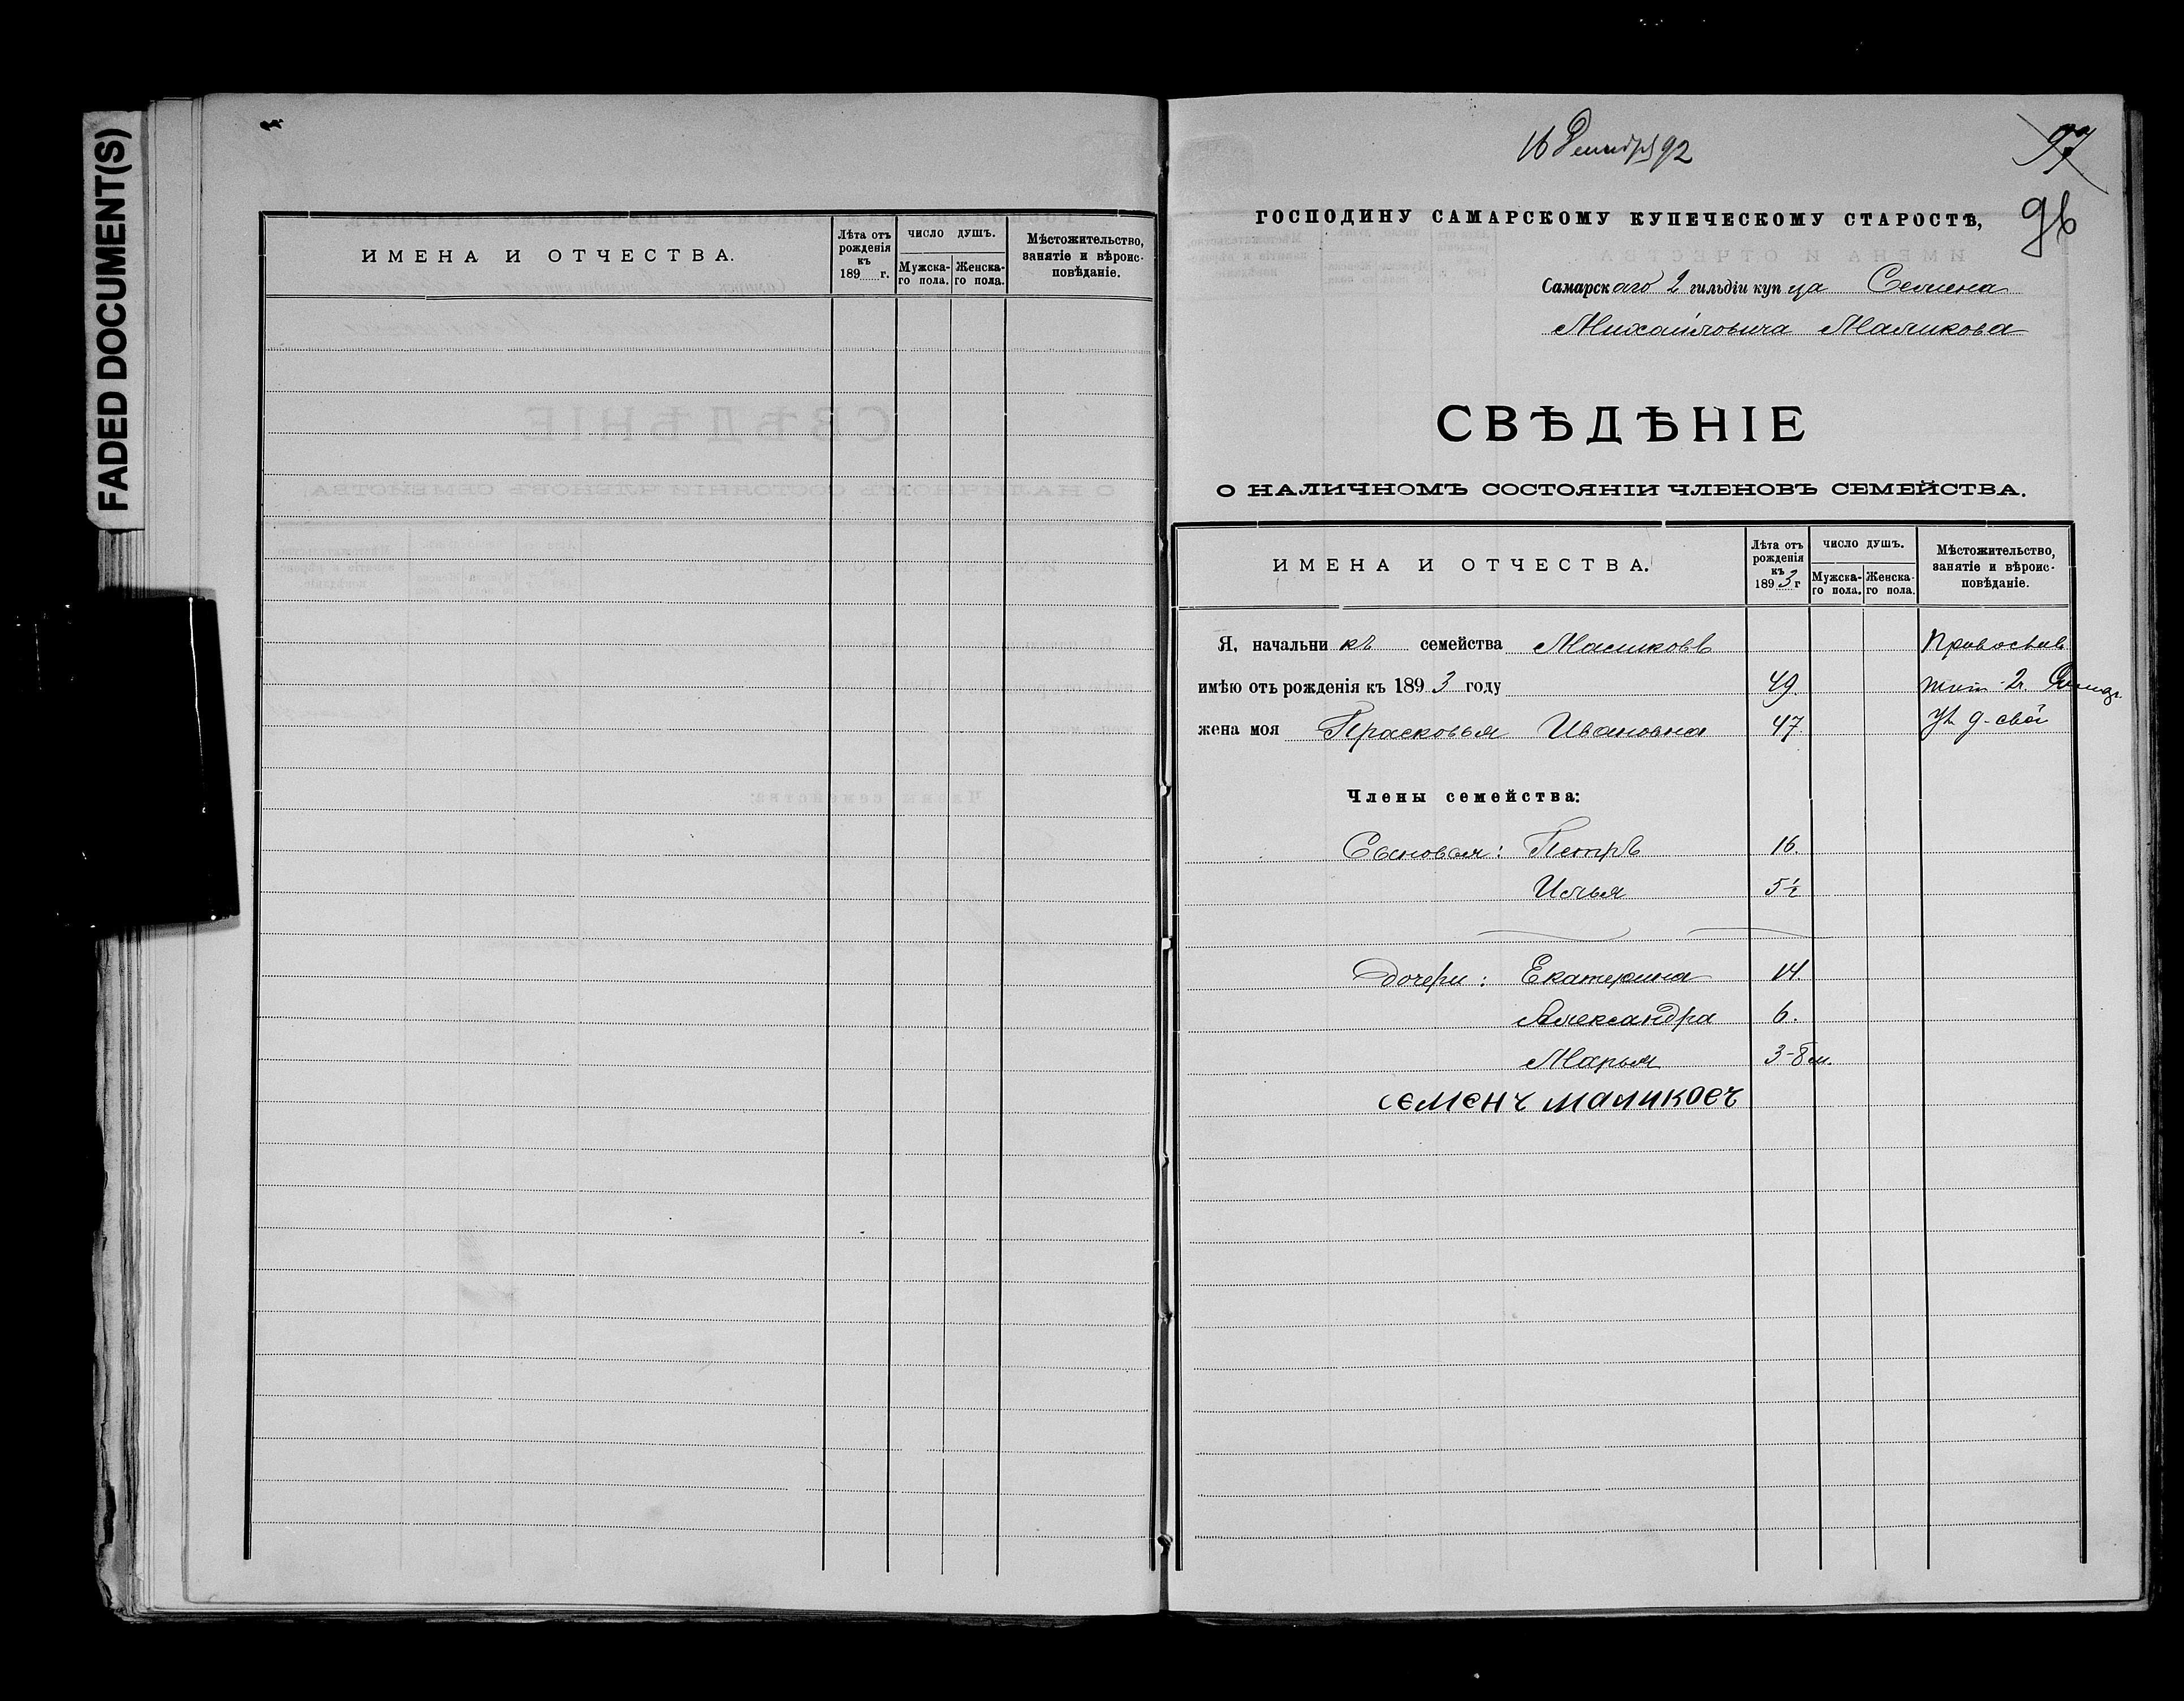 FADED DOCUMENT(S)
ИМЕНА И ОТЧЕСТВА.
Лѣта отъ рожденія къ 189 г.
ЧИСЛО ДУШЪ.
Мужска-го пола.
Женска-го пола.
Мѣстожительство, занятіе и вѣроис-повѣданіе.
16 Декабря 92
97
96
ГОСПОДИНУ САМАРСКОМУ КУПЕЧЕСКОМУ СТАРОСТѢ,
Самарскаго 2 гильдіи купца Семена
Михайловича Маликова
СВѢДѢНІЕ
О НАЛИЧНОМЪ СОСТОЯНІИ ЧЛЕНОВЪ СЕМЕЙСТВА.
ИМЕНА И ОТЧЕСТВА.
Лѣта отъ рожденія къ 1893 г
ЧИСЛО ДУШЪ.
Мужска-го пола.
Женска-го пола.
Мѣстожительство, занятіе и вѣроис-повѣданіе.
Я, начальникъ семейства Маликовъ Православ
имѣю отъ рожденія къ 1893 году 49. жит. 2г.
жена моя Прасковья Ивановна 47.
Члены семейства:
Сыновья: Петръ 16.
Илья 5½
Дочери: Екатерина 14.
Александра 6.
Марья 3-8 м.
семенъ маликовъ